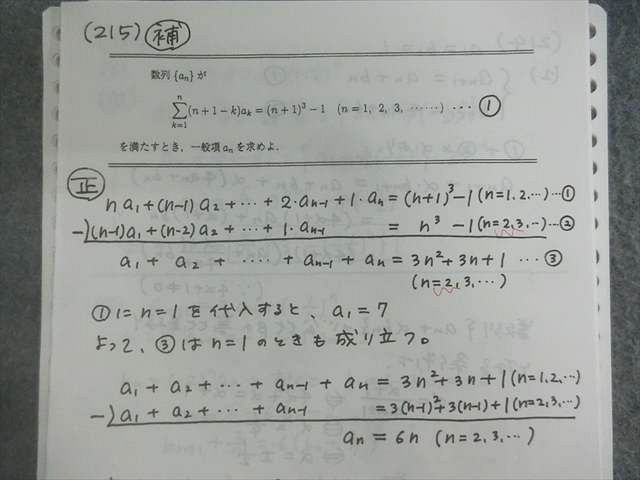 (215) 補
数列 {aₙ} が
∑_{k=1}^{n} (n+1-k)aₖ = (n+1)³ - 1 (n = 1, 2, 3, ……) ⋯ ①
を満たすとき，一般項 aₙ を求めよ．
正
n a₁ + (n-1) a₂ + ⋯ + 2・aₙ₋₁ + 1・aₙ = (n+1)³ - 1 (n=1,2,⋯) ⋯①
-) (n-1)a₁ + (n-2)a₂ + ⋯ + 1・aₙ₋₁ = n³ - 1 (n=2,3,⋯) ⋯②
a₁ + a₂ + ⋯ + aₙ₋₁ + aₙ = 3n² + 3n + 1 ⋯ ③
(n=2,3,⋯)
①に n=1 を代入すると、a₁ = 7
よって、③は n=1 のときも成り立つ。
a₁ + a₂ + ⋯ + aₙ₋₁ + aₙ = 3n² + 3n + 1 (n=1,2,⋯)
-) a₁ + a₂ + ⋯ + aₙ₋₁ = 3(n-1)² + 3(n-1) + 1 (n=2,3,⋯)
aₙ = 6n (n=2,3,⋯)